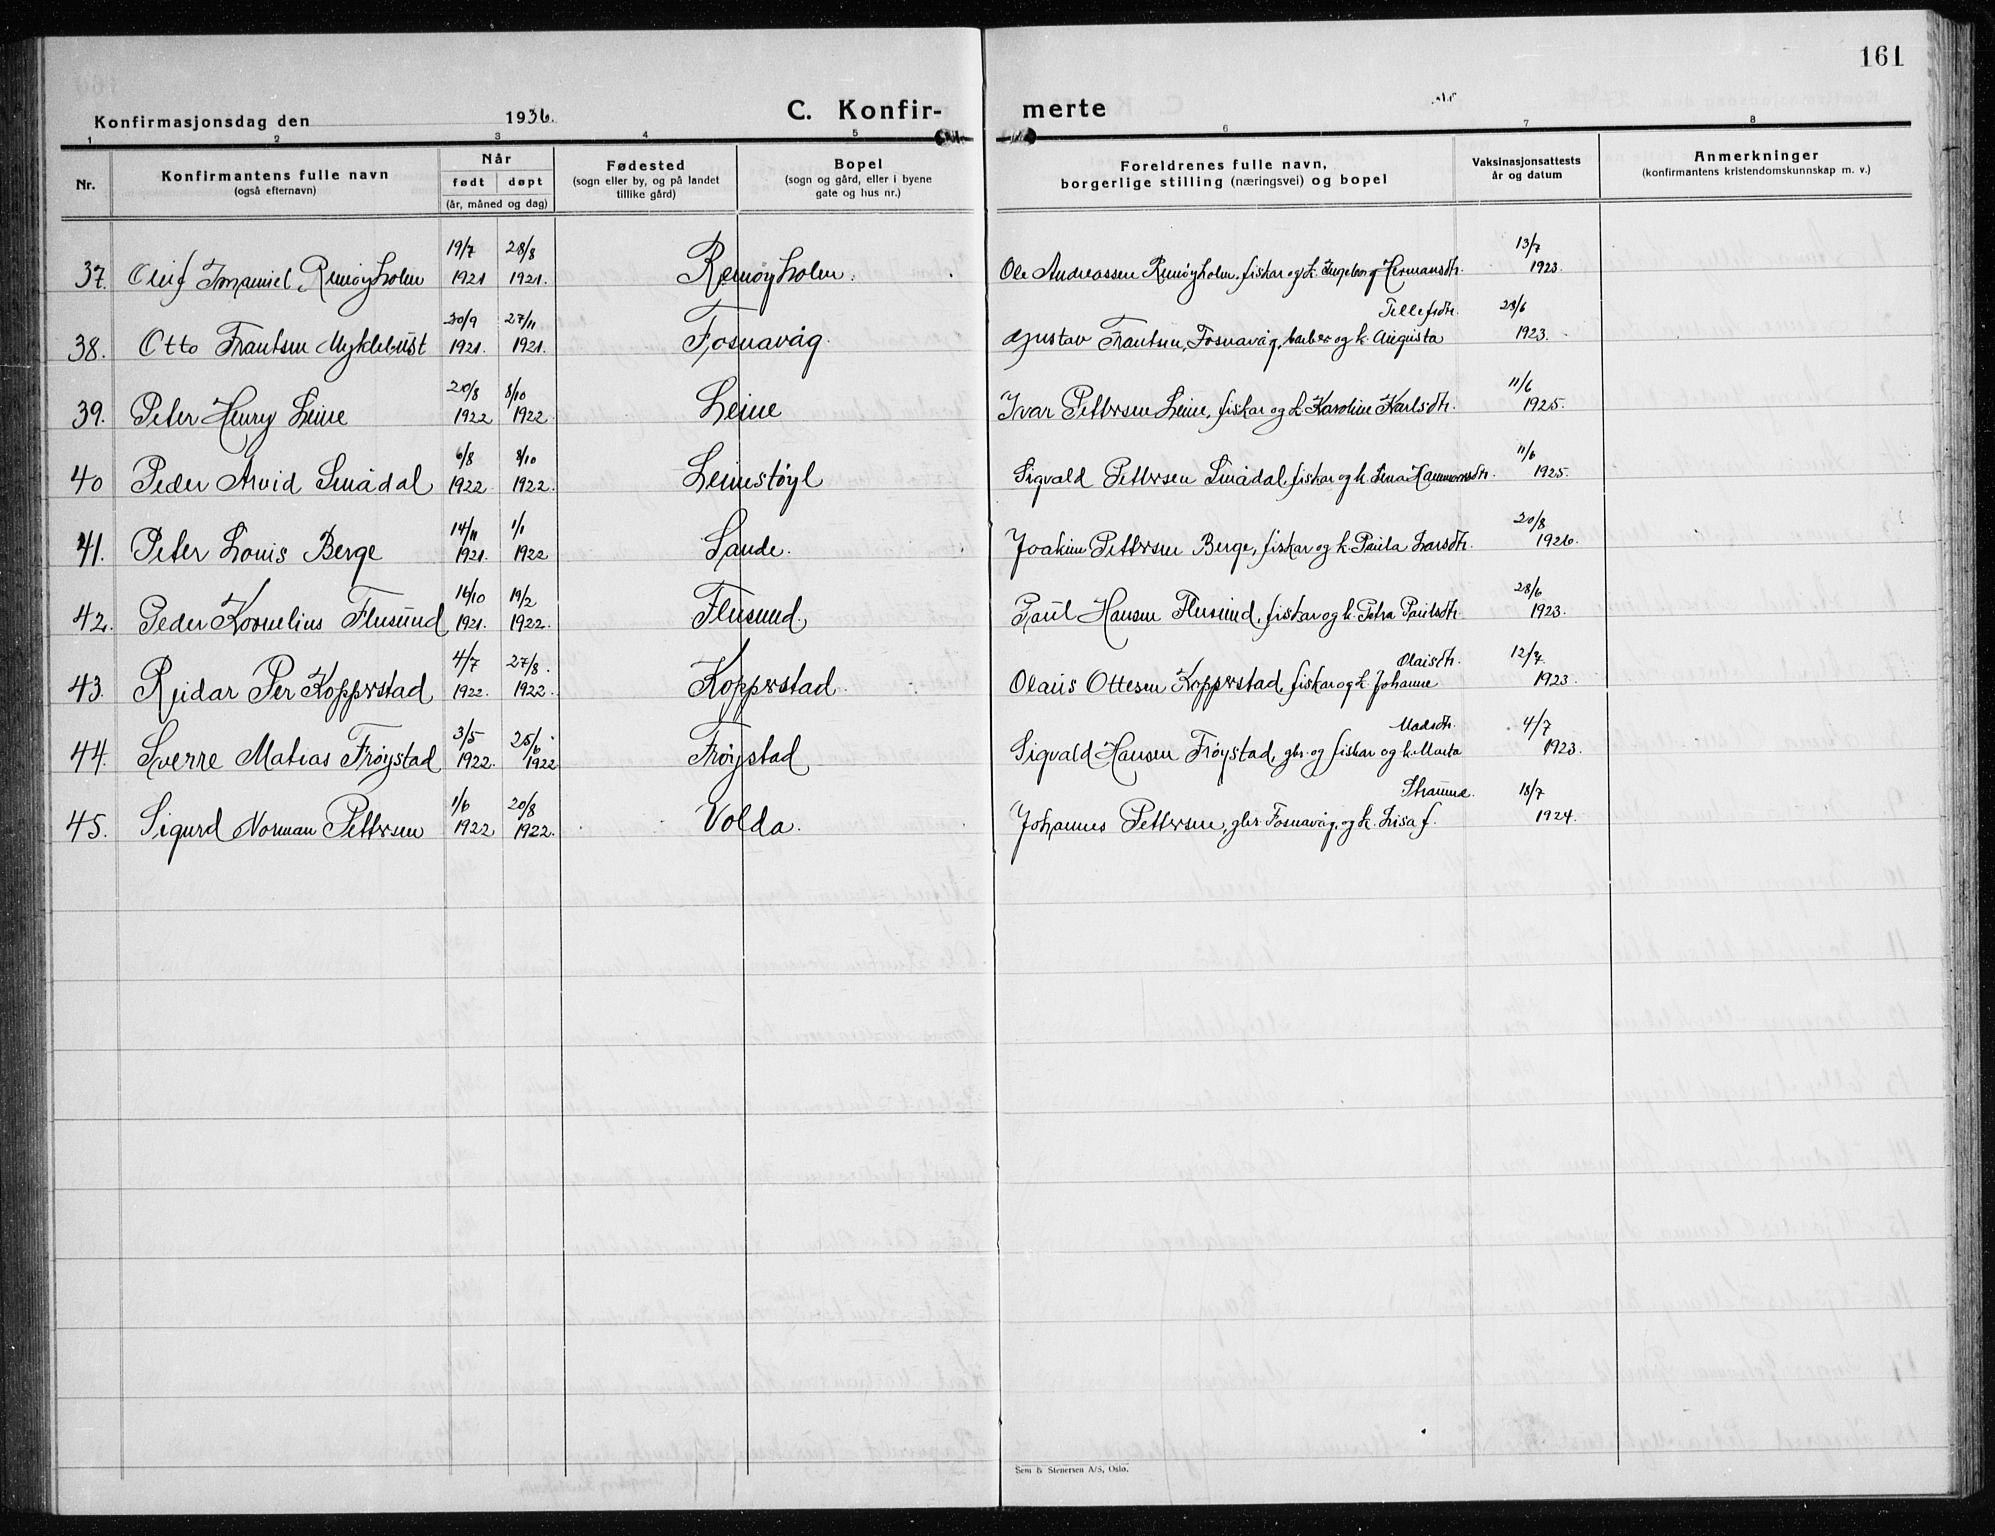 161
Konfirmasjonsdag den 1936.
C. Konfir-
merte
1 2 3 4 5 6 7 8
Nr.
Konfirmantens fulle navn
(også efternavn)
Når
født døpt
(år, måned og dag)
Fødested
(sogn eller by, og på landet
tillike gård)
Bopel
(sogn og gård, eller i byene
gate og hus nr.)
Foreldrenes fulle navn,
borgerlige stilling (næringsvei) og bopel
Vaksinasjonsattests
år og datum
Anmerkninger
(konfirmantens kristendomskunnskap m. v.)
19/7 28/8 13/7
37. Oluf Imanuel Remøyholm 1921 1921. Remøyholm. Ole Andreassen Remøyholm, fiskar og k. Ingeborg Hermansdtr. 1923.
20/9 27/11 Tellefsdtr. 28/6
38. Otto Frantsen Myklebust 1921. 1921. Fosnavåg. Gustav Frantsen, Fosnavåg, barber og k. Augusta 1923.
20/8 8/10 11/6
39. Peter Henry Leine 1922 1922. Leine Ivar Pettersen Leine, fiskar og k. Karoline Karlsdtr. 1925.
6/8 8/10 11/6
40 Peder Arvid Smådal 1922 1922. Leinestøyl Sigvald Pettersen Smådal, fiskar og k. 1925.
14/11 1/1 20/8
41. Peter Louis Berge 1921. 1922 Sande. Joakim Pettersen Berge, fiskar og k. Paula Larsdtr. 1926.
16/10 19/2 28/6
42. Peder Kornelius Flusund 1921. 1922. Flusund. Paul Hansen Flusund, fiskar og k. Petra Paulsdtr. 1923.
4/7 27/8. Olaisdtr. 12/7.
43. Reidar Per Kopperstad 1922. 1922. Kopperstad. Olaus Ottesen Kopperstad, fiskar og k. Johanne 1923.
3/5 25/6. Madsdtr. 4/7
44. Sverre Matias Frøystad 1922. 1922 Frøystad Sigvald Hansen Frøystad, gbr. og fiskar og k. Marta 1923.
1/6 20/8 Straume. 18/7
45. Sigurd Norman Pettersen 1922 1922. Volda. Johannes Pettersen, gbr. Fosnavåg, og k. Lisa f. 1924.
Sem & Stenersen A/S, Oslo.